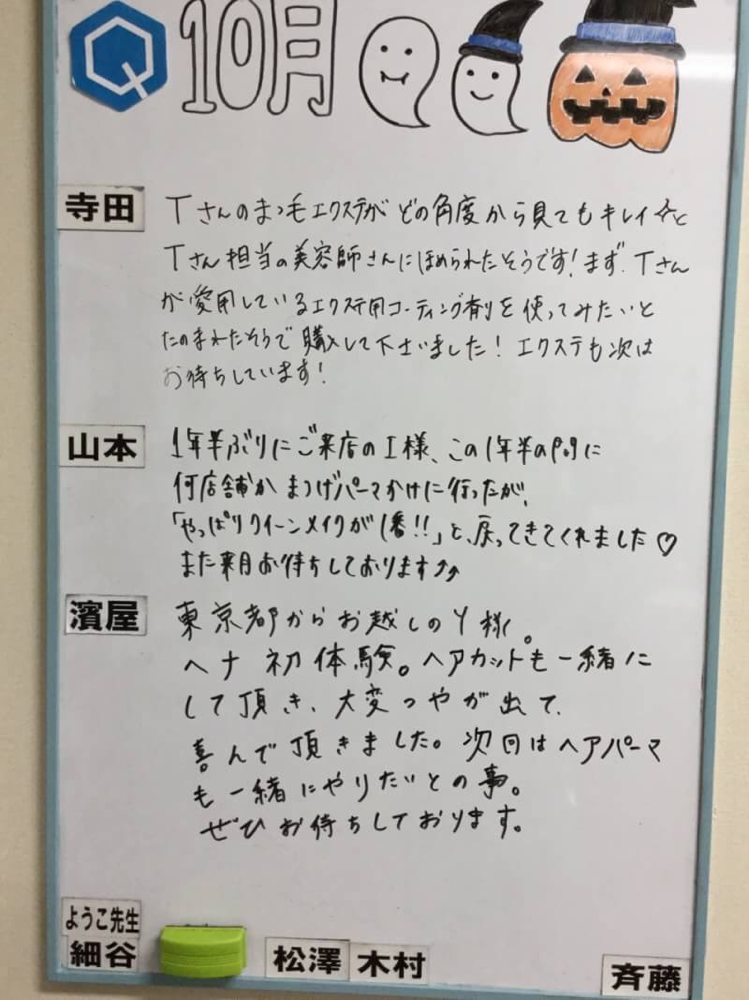 Q 10月
寺田
Tさんのまつ毛エクステがどの角度から見てもキレイ☆と
Tさん担当の美容師さんにほめられたそうです!まず、Tさん
が愛用しているエクステ用コーティング剤を使ってみたいと
たのまれたそうで購入して下さいました!エクステも次は
お待ちしています!
山本
1年半ぶりにご来店のI様、この1年半の内に
何店舗かまつげパーマかけに行ったが、
「やっぱりクイーンメイクが1番!!」と、戻ってきてくれました♡
また来月お待ちしております↑↑
濱屋
東京都からお越しのY様。
ヘナ初体験。ヘアカットも一緒に
して頂き、大変つやが出て、
喜んで頂きました。次回はヘアパーマ
も一緒にやりたいとの事。
ぜひお待ちしております。
ようこ先生
細谷
松澤 木村
斉藤